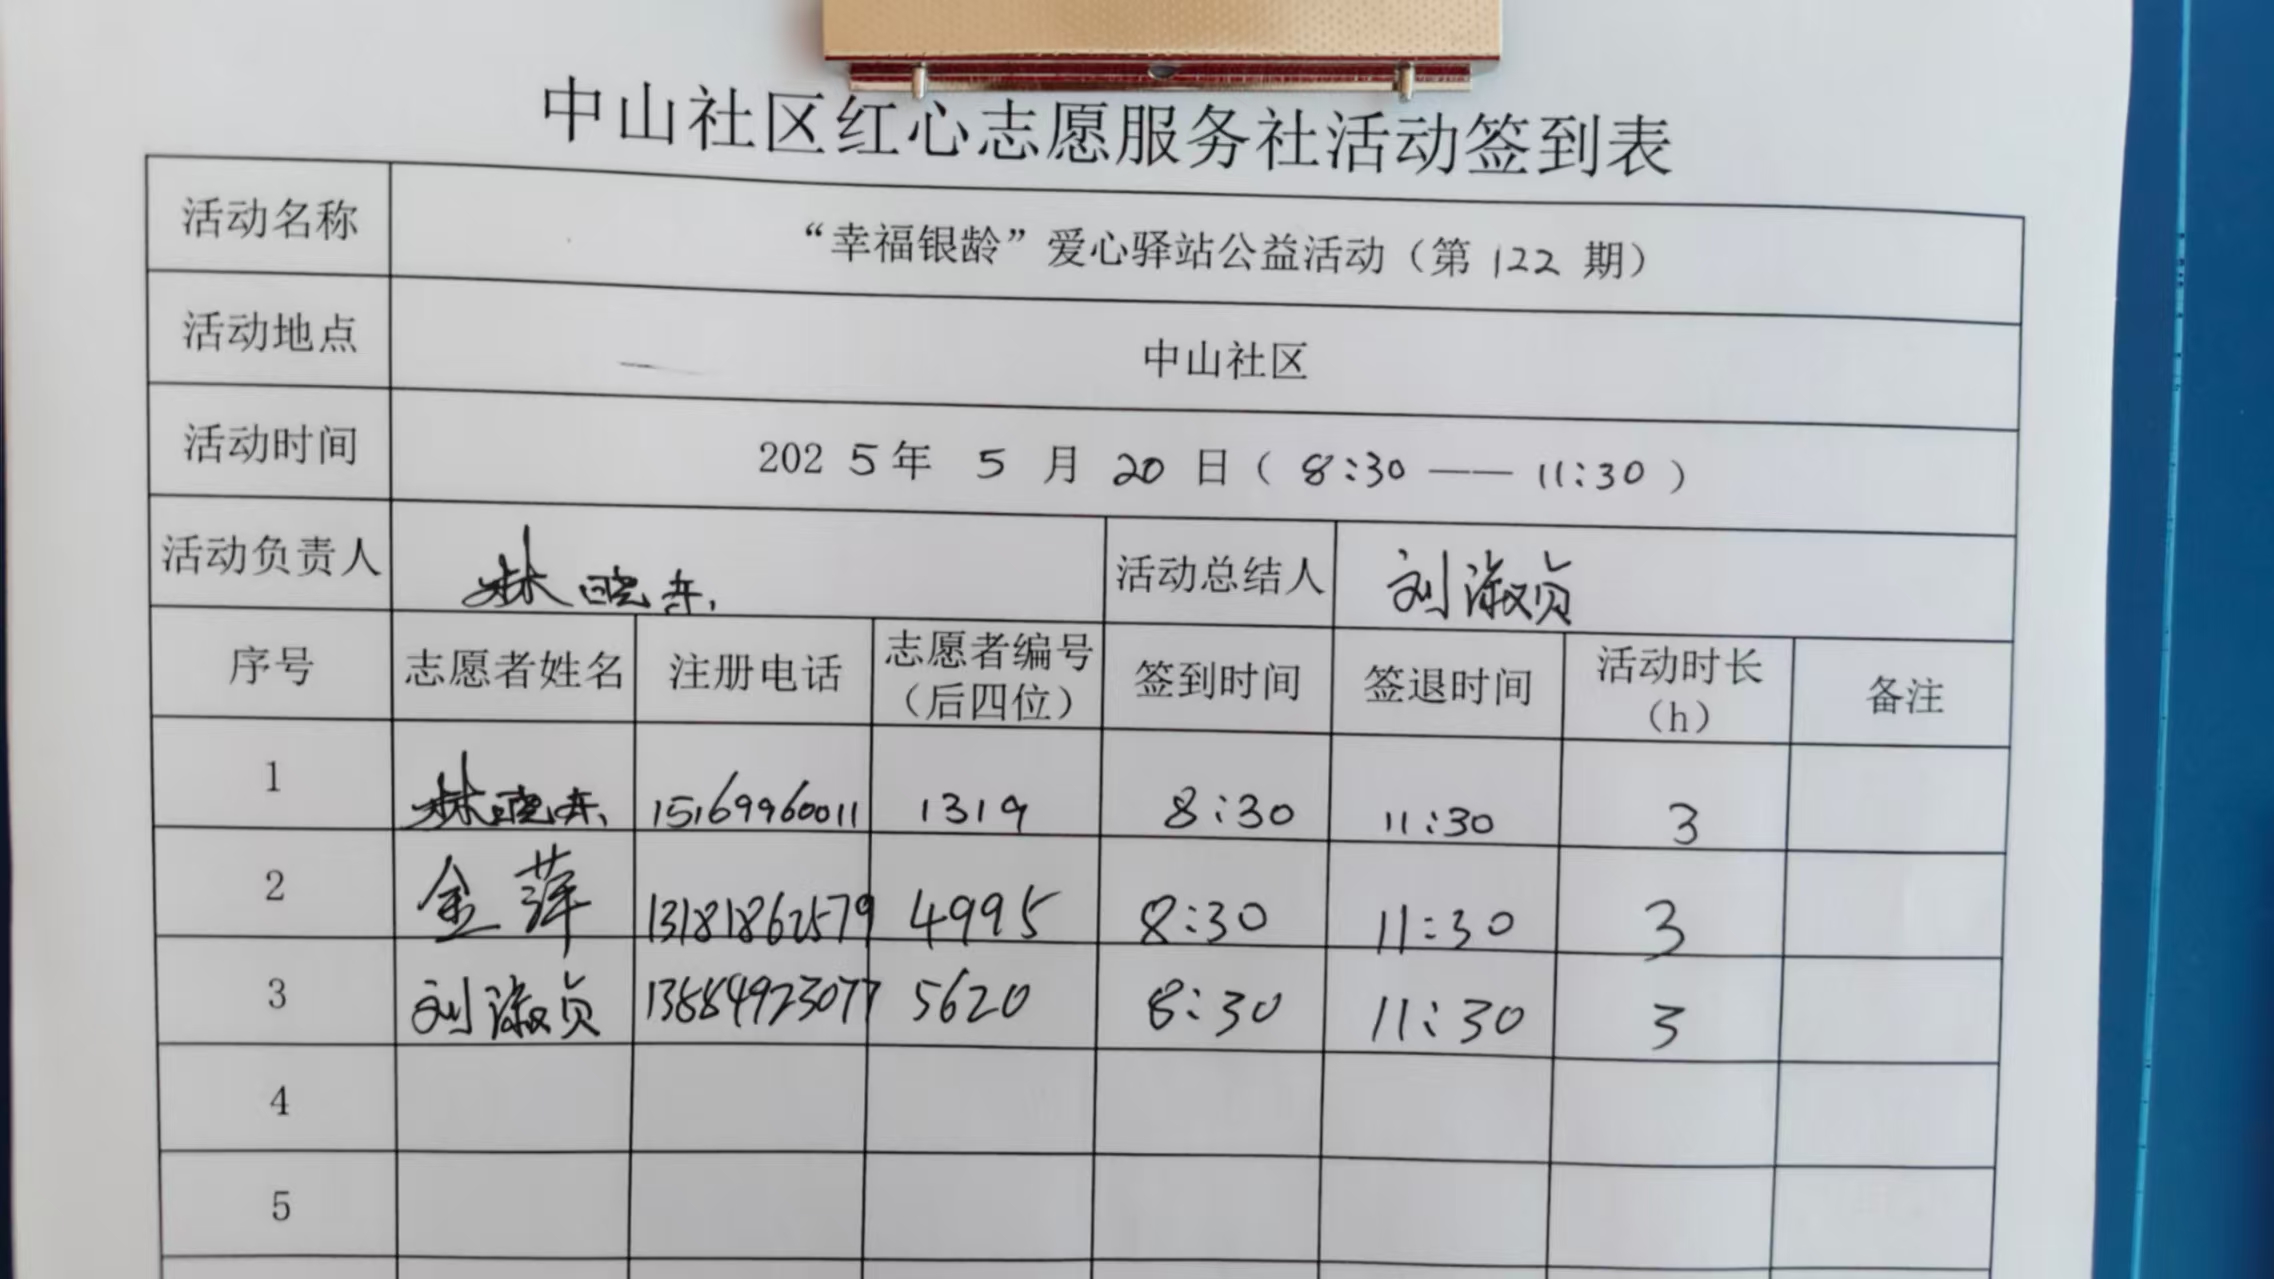 中山社区红心志愿服务社活动签到表
活动名称 “幸福银龄”爱心驿站公益活动（第 122 期）
活动地点 中山社区
活动时间 2025年 5 月 20 日（8:30 —— 11:30）
活动负责人 林晓东 活动总结人 刘淑贞
序号 志愿者姓名 注册电话 志愿者编号（后四位） 签到时间 签退时间 活动时长（h） 备注
1 林晓东 15169960011 1319 8:30 11:30 3
2 金萍 13181862579 4995 8:30 11:30 3
3 刘淑贞 13884923077 5620 8:30 11:30 3
4
5